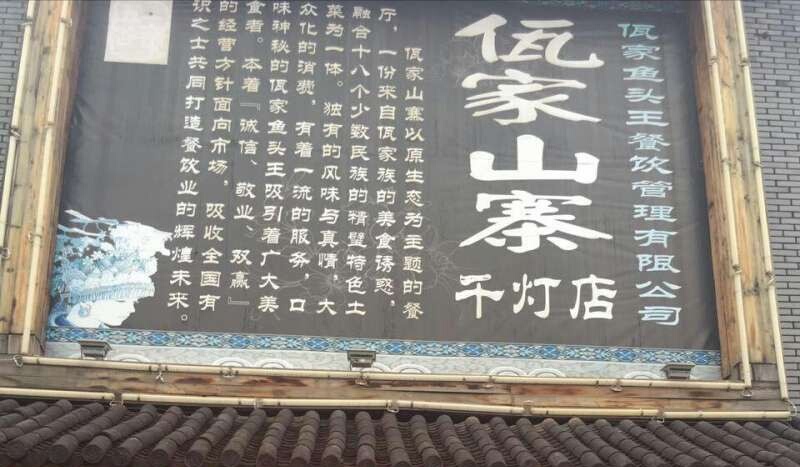 佤家鱼头王餐饮管理有限公司
佤家山寨
千灯店
佤家山寨以原生态为主题的餐
厅，一份来自佤家族的美食诱惑，
融合十八个少数民族的精璧特色土
菜为一体。独有的风味与真情，大
众化的消费，有着一流的服务，口
味神秘的佤家鱼头王吸引着广大美
食者。本着『诚信、敬业、双赢』
的经营方针面向市场，吸收全国有
识之士共同打造餐饮业的辉煌未來。